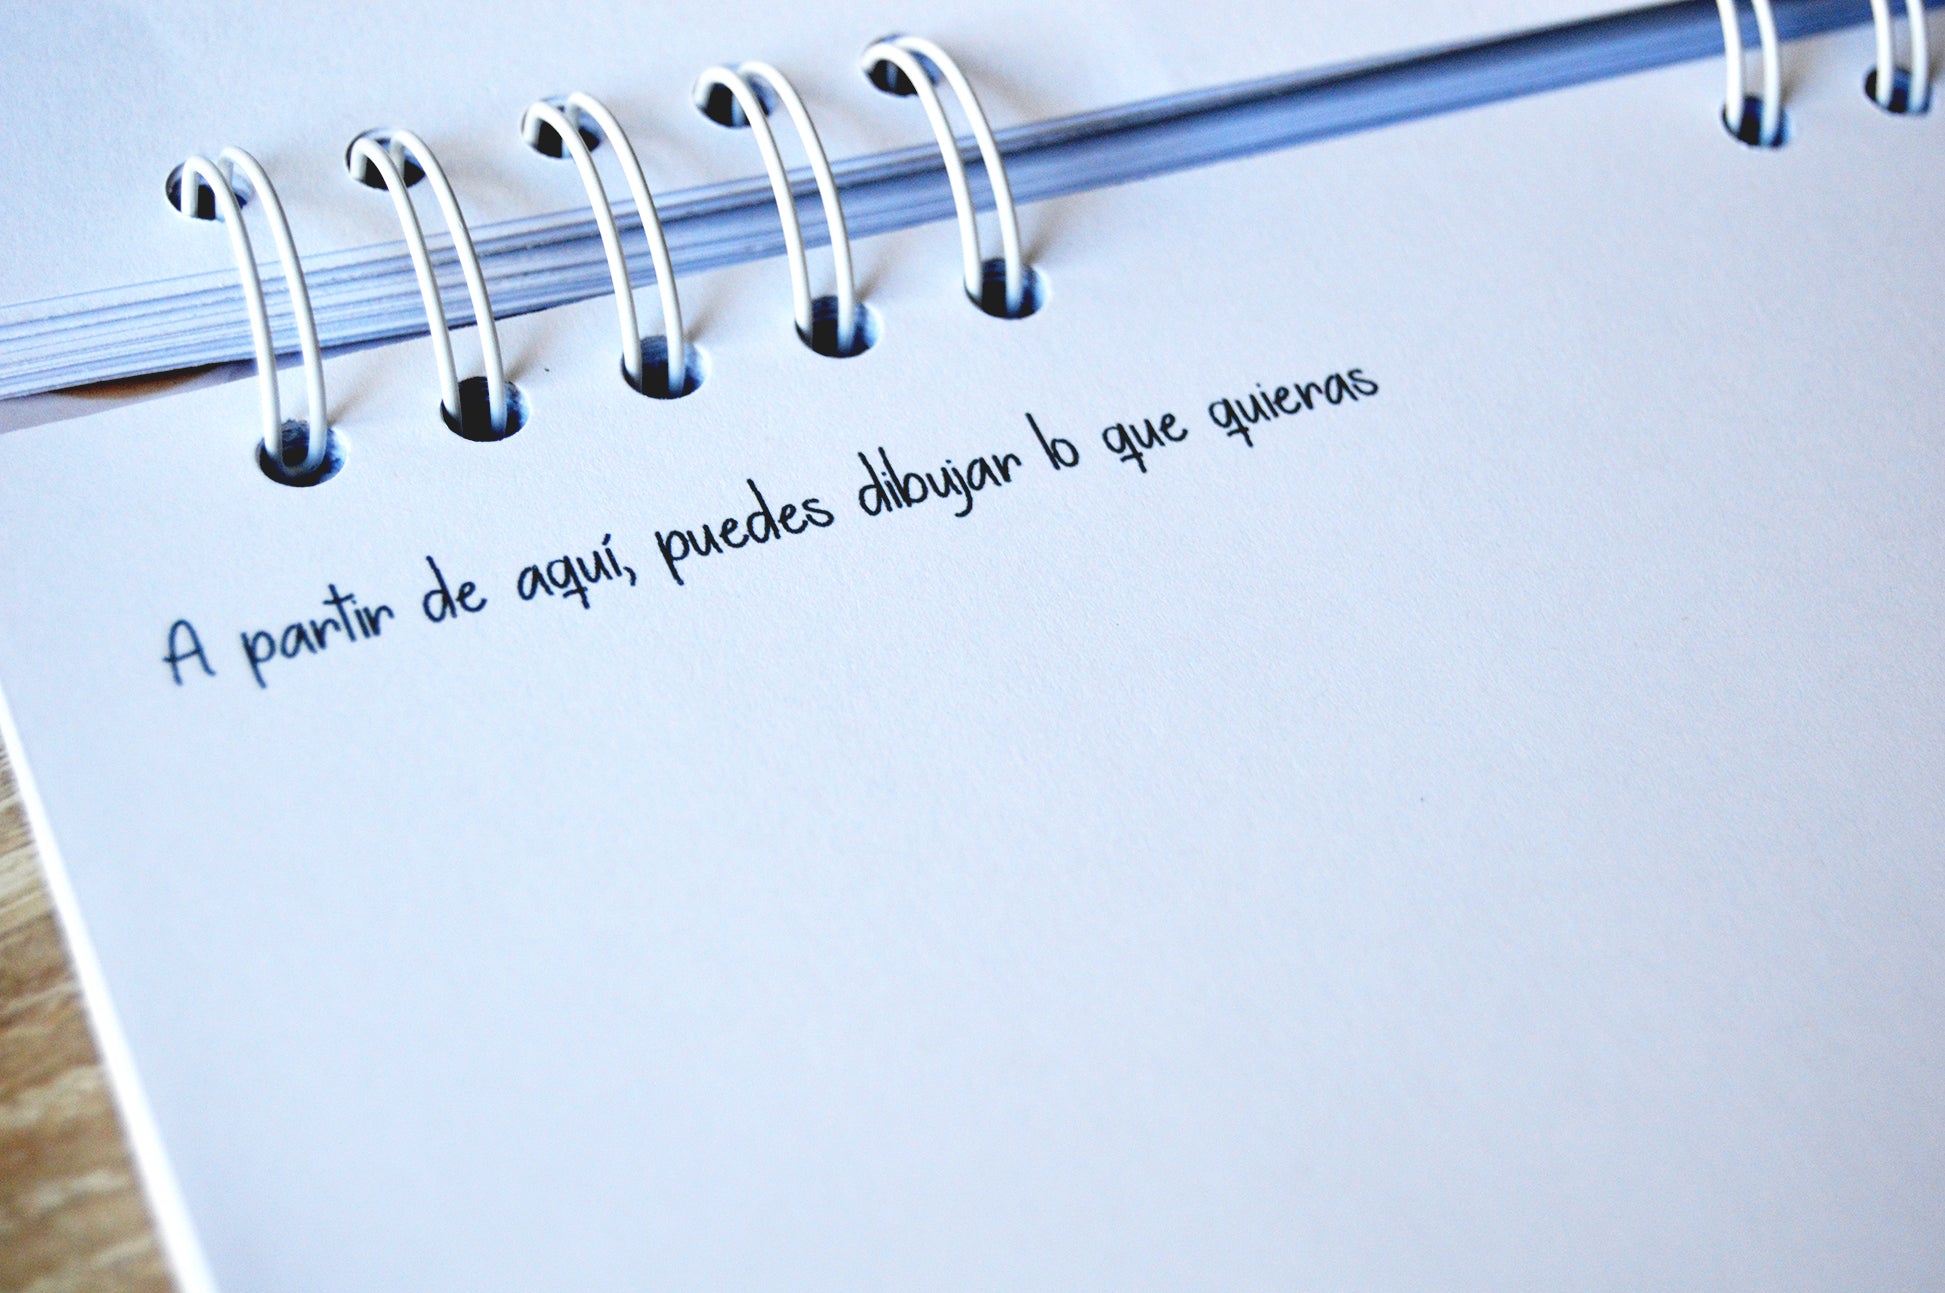 A partir de aquí, puedes dibujar lo que quieras